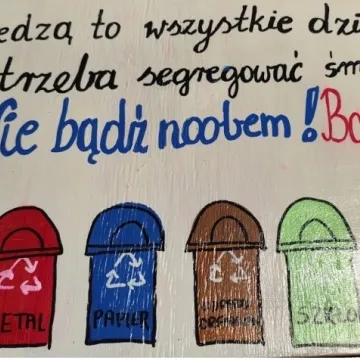 edzą to wszystkie dzi
trzeba segregować śm
ie bądź noobem! Bo
ETAL
PAPIER
SZKŁO